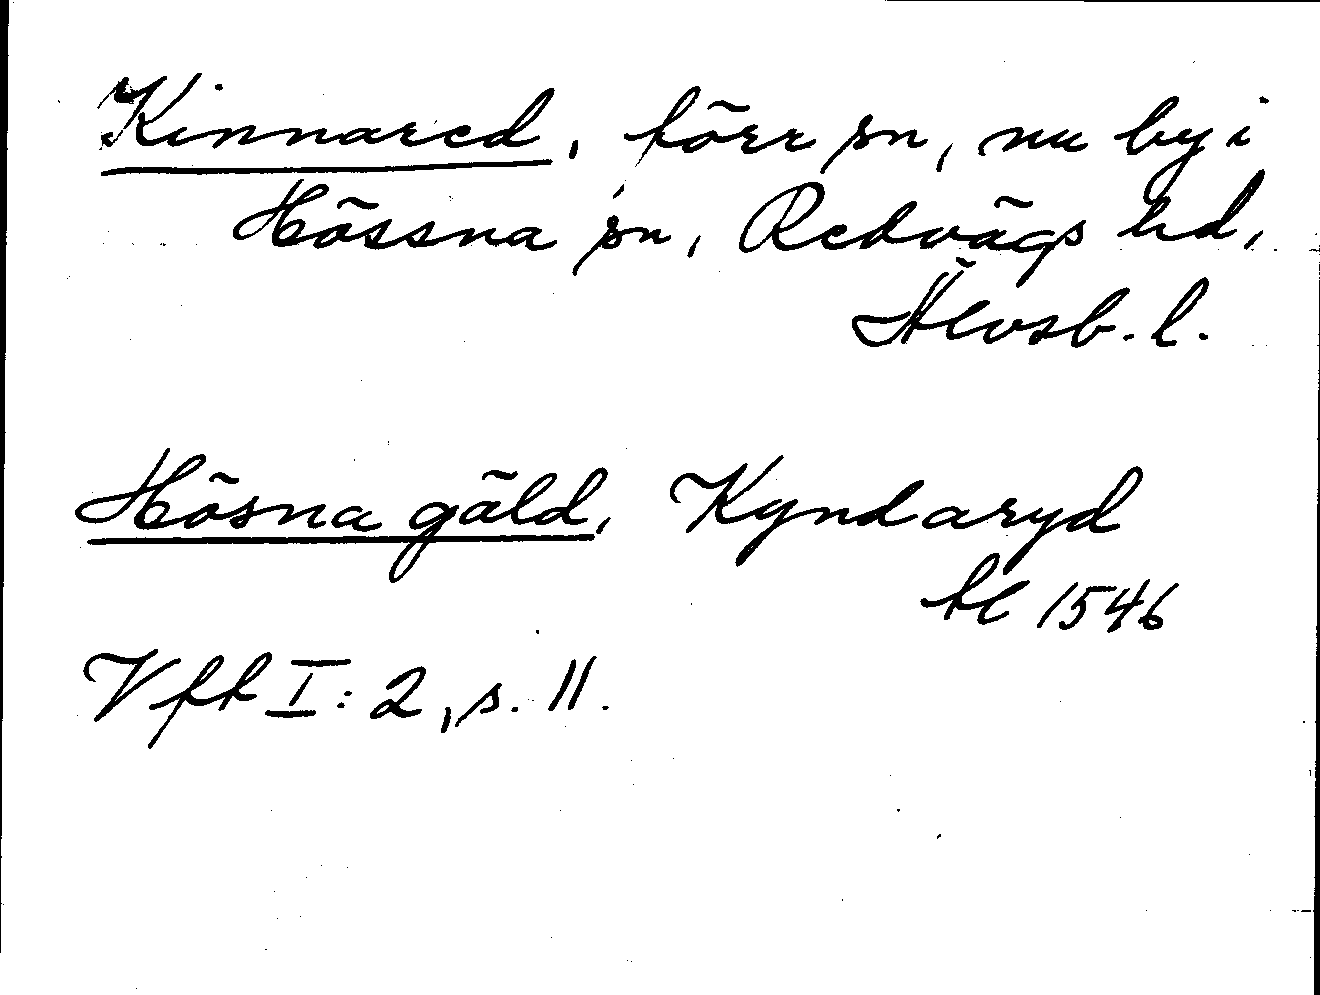 Kinnared, förr sn, nu by i
Hössna sn, Redvägs hd,
Älvsb. l.
Hösna gäld, Kyndaryd
1546
Vff I: 2, s. 11.